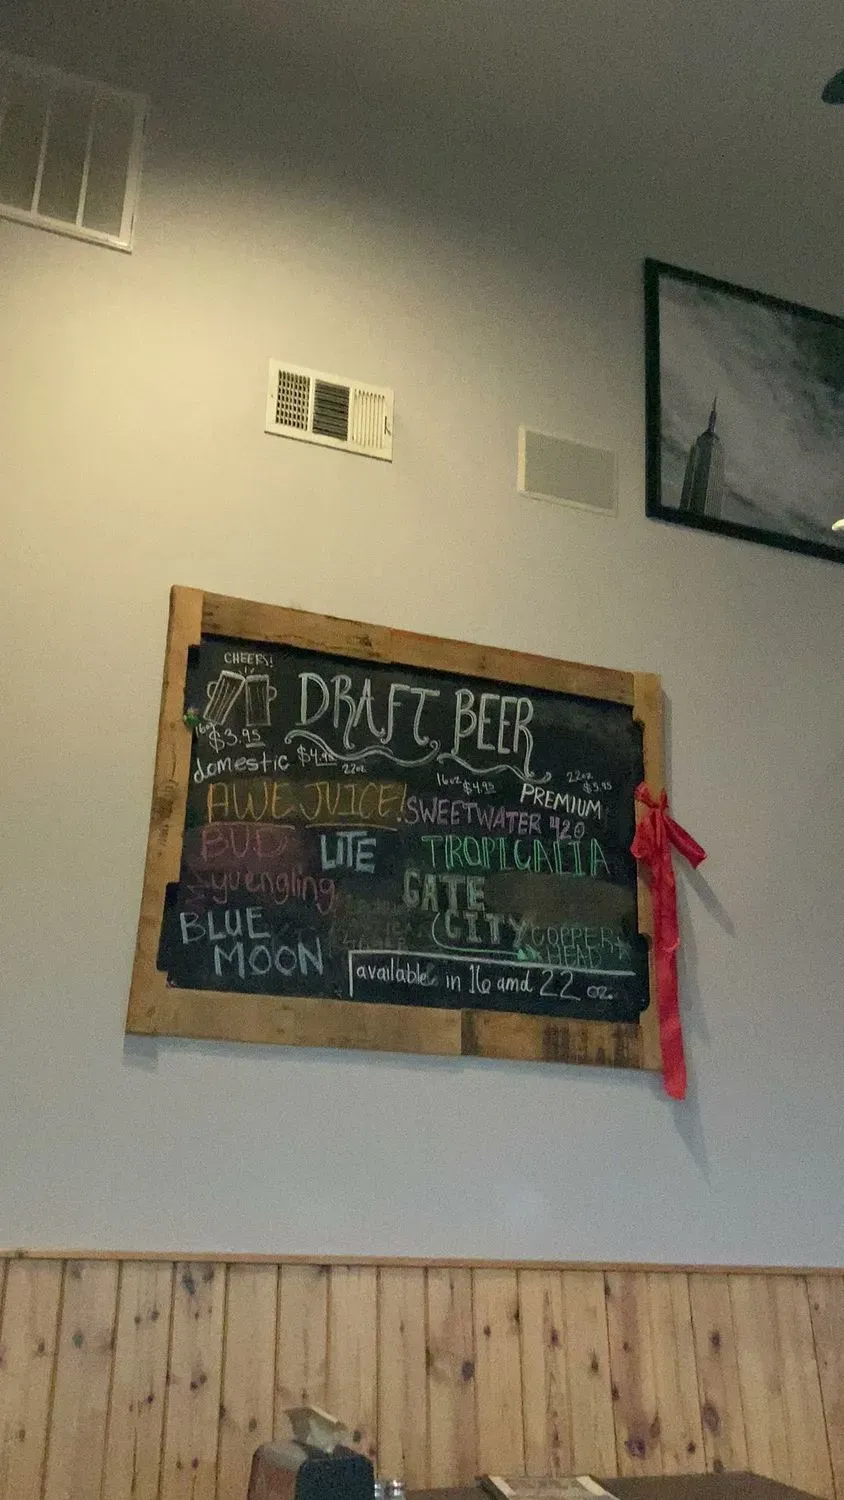 CHEERS!
DRAFT BEER
16oz $3.95
domestic $4.95
22oz
16oz $4.95 22oz $5.95
PREMIUM
AWE JUICE!
SWEETWATER 420
BUD LITE
TROPICALIA
yuengling
GATE CITY COPPER HEAD
BLUE MOON
available in 16 and 22 oz.